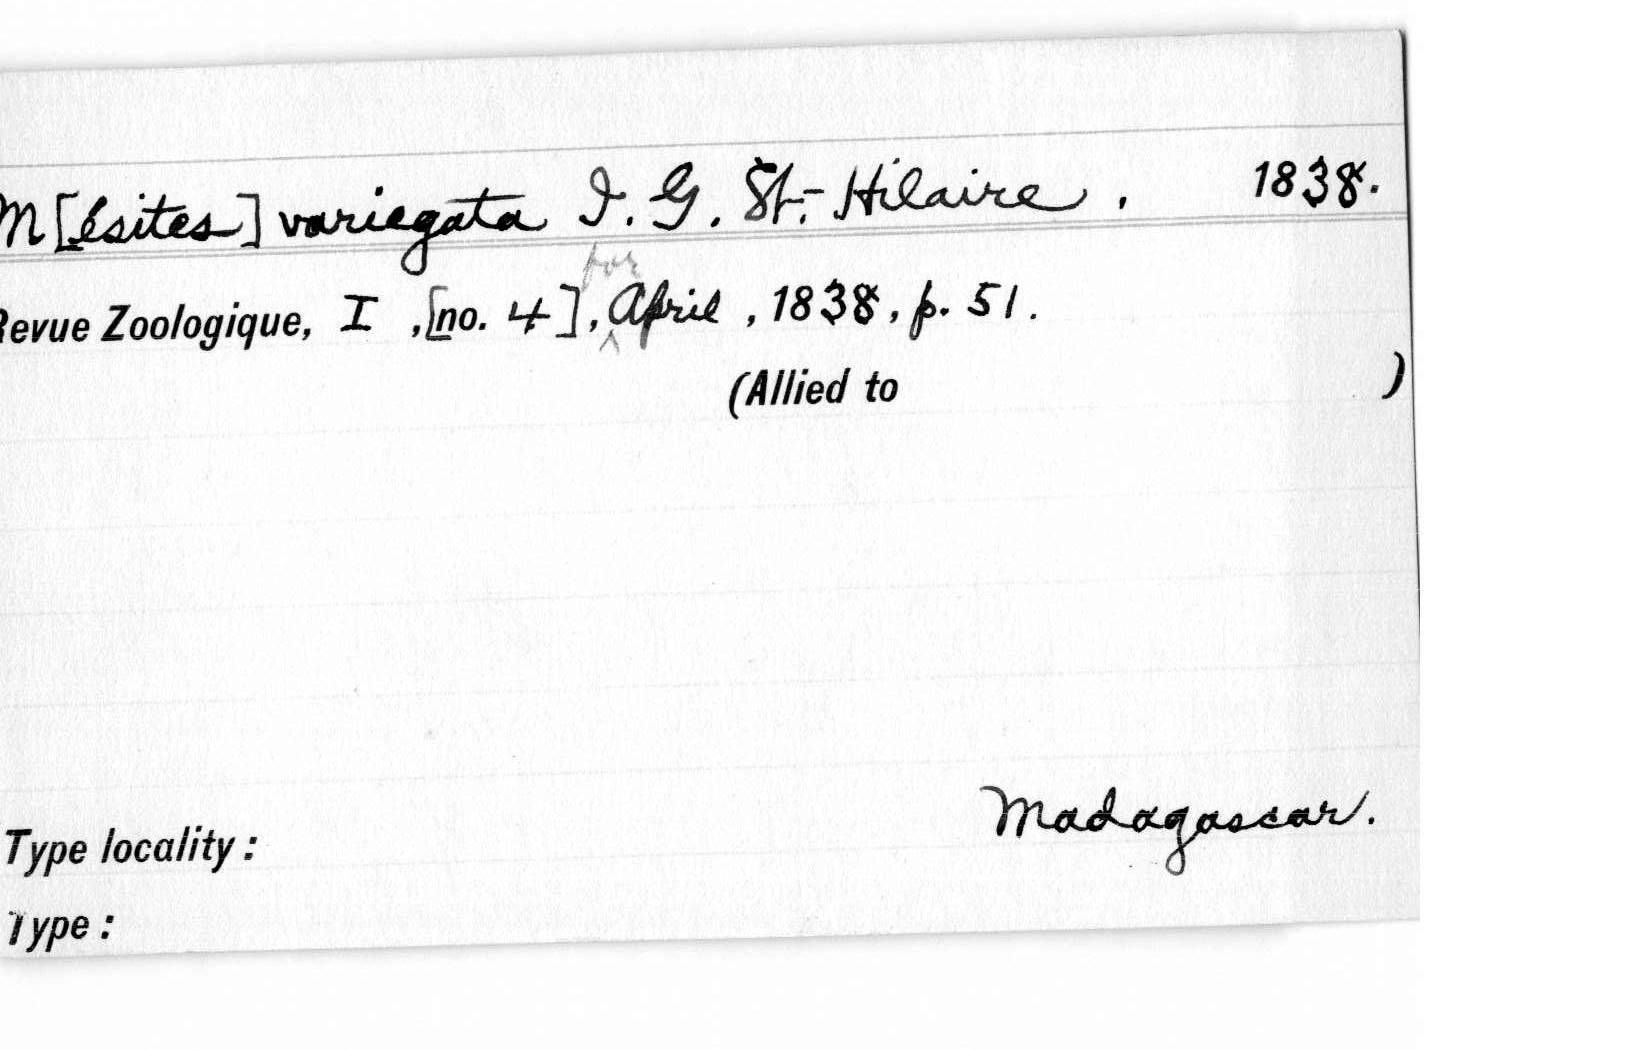 M[ésites] variegata I. G. St.-Hilaire. 1838.
Revue Zoologique, I, [no. 4], for April, 1838, p. 51.
(Allied to )
Madagascar.
Type locality:
Type: